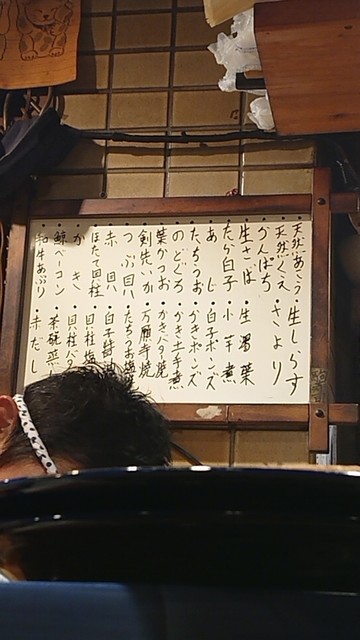 天然あこう・生しらす
天然くえ・さより
かんぱち
生さば・生湯葉
たら白子・小芋煮
あじ・白子ポンズ
たちうお・かきポンズ
のどぐろ・かき土手煮
葉がつお・かきバタ焼
剣先いか・万願寺焼
つぶ貝・たちうお塩焼
赤貝・白子
ほたて貝柱・貝柱塩焼
かき・貝柱バタ
鯨ベーコン・茶碗蒸
和牛あぶり・赤だし